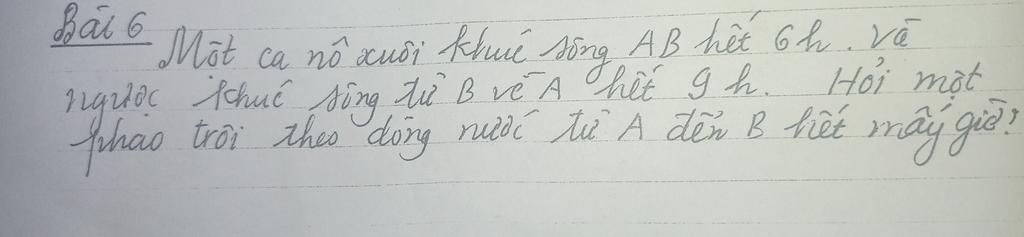 Bài 6
Một ca nô xuôi khúc sông AB hết 6h. Và
ngược khúc sông từ B về A hết 9 h. Hỏi một
phao trôi theo dòng nước từ A đến B hết mấy giờ?